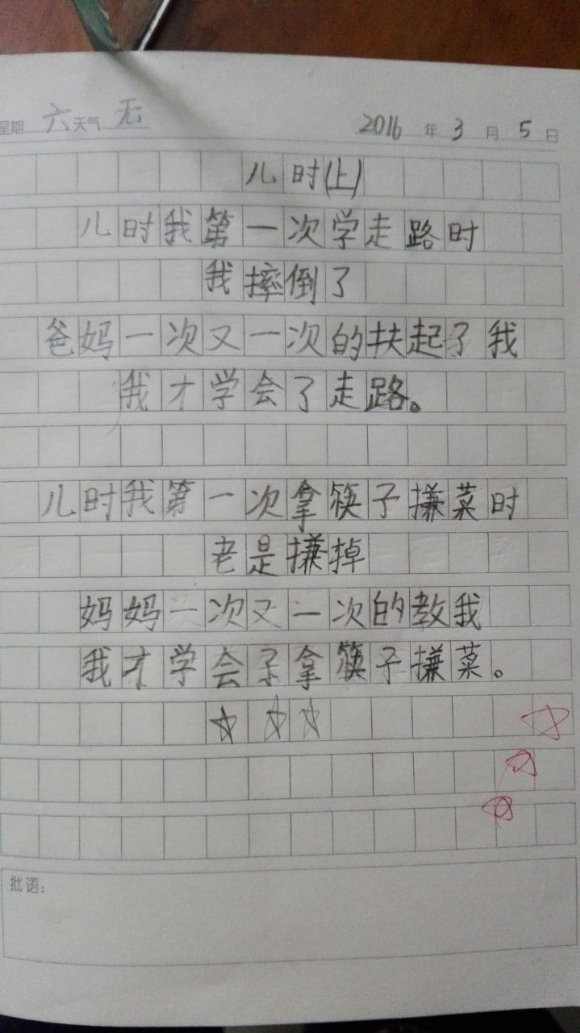 星期 六 天气 无 2016 年 3 月 5 日
儿时(上)
儿时我第一次学走路时
我摔倒了
爸妈一次又一次的扶起了我
我才学会了走路。
儿时我第一次拿筷子搛菜时
老是搛掉
妈妈一次又一次的教我
我才学会了拿筷子搛菜。
批语：